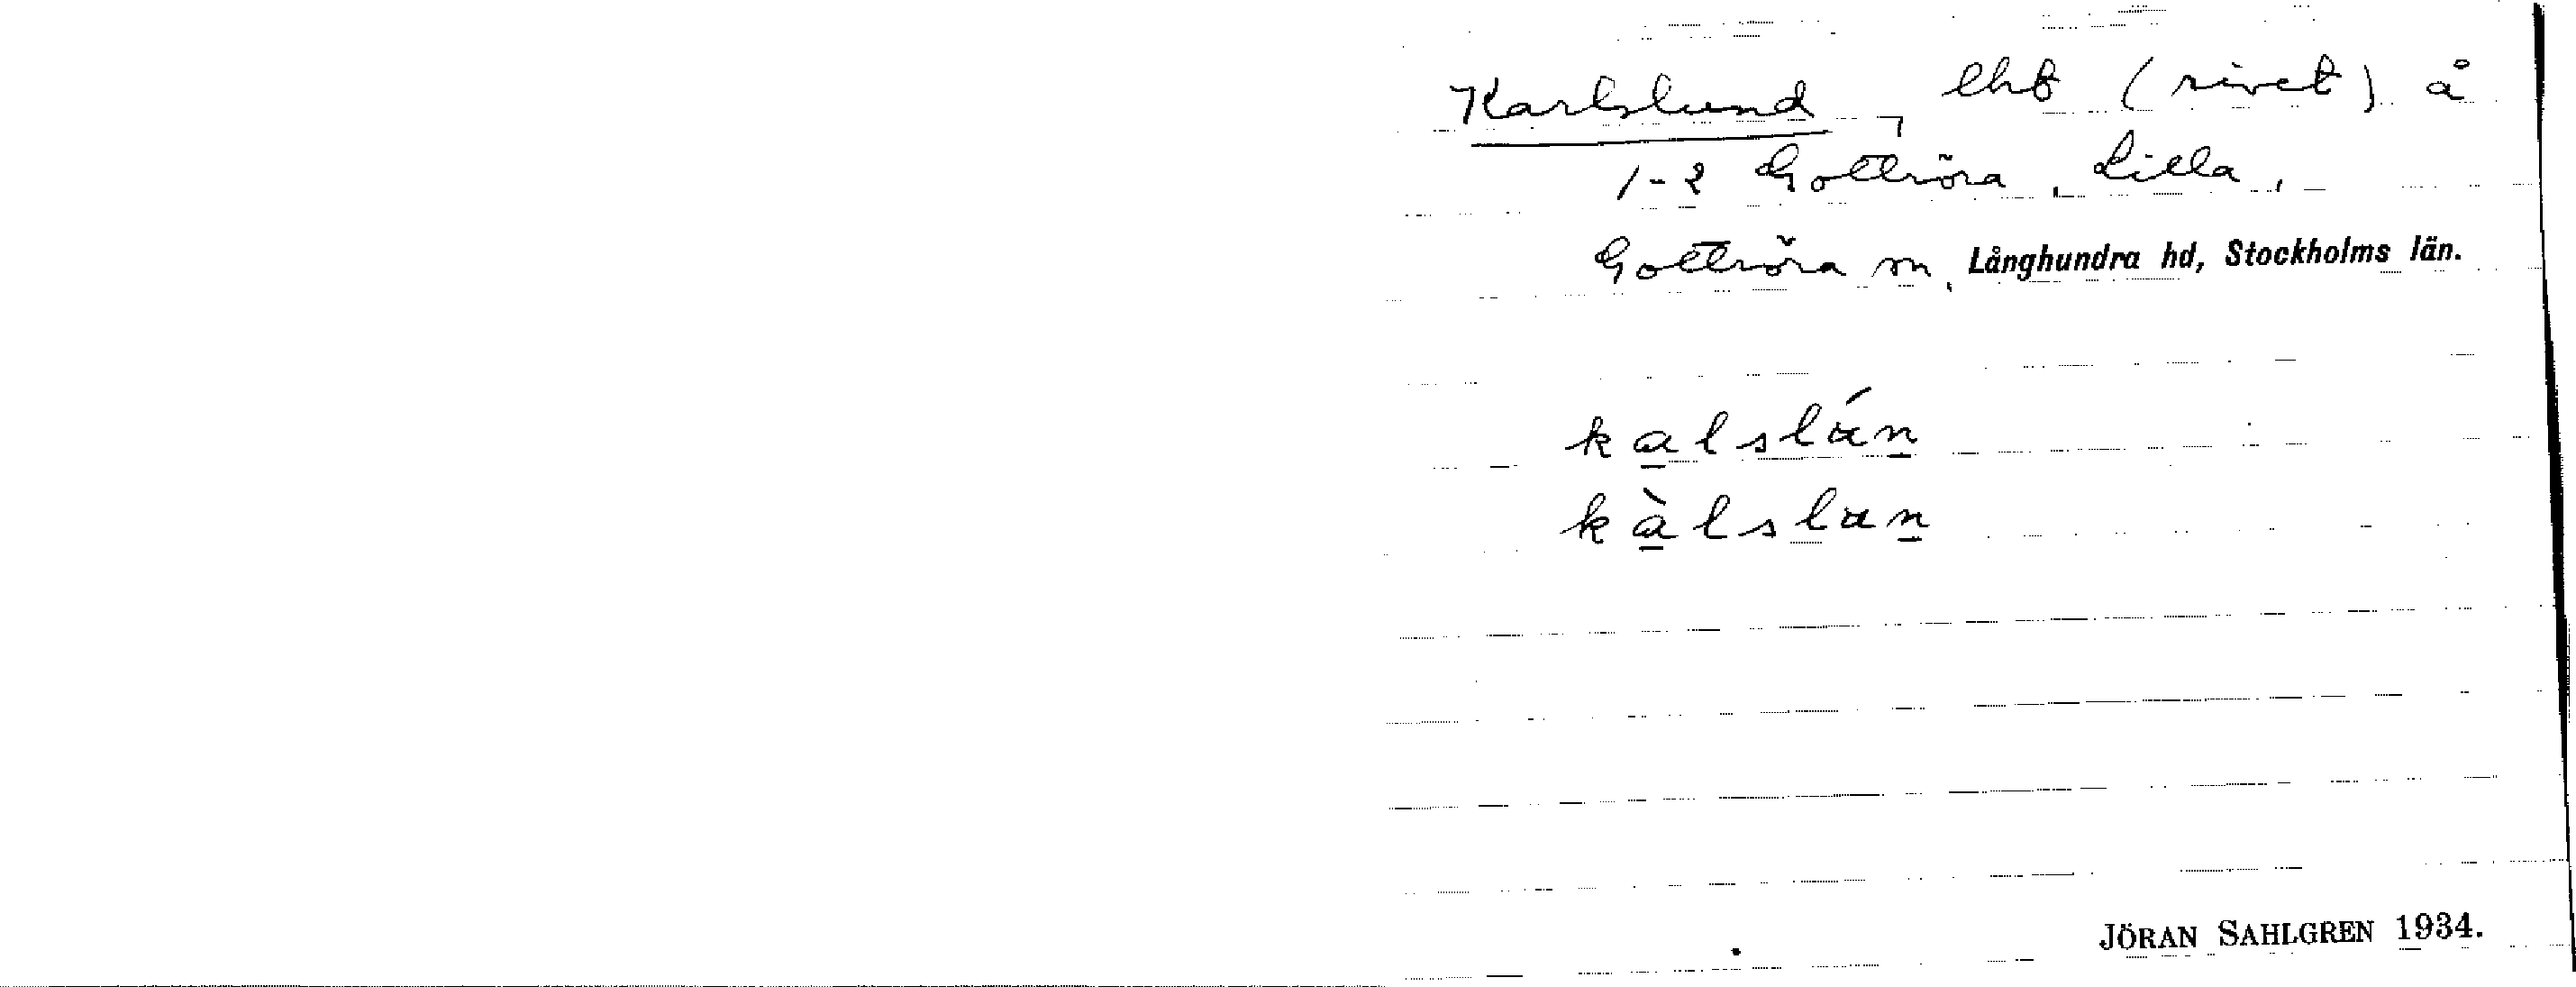 Karlslund, lht (rivet) å
1-2 Gottröra, Lilla,
Gottröra sn, Långhundra hd, Stockholms län.
ka̲lslán̲
kà̲lslan̲
JÖRAN SAHLGREN 1934.